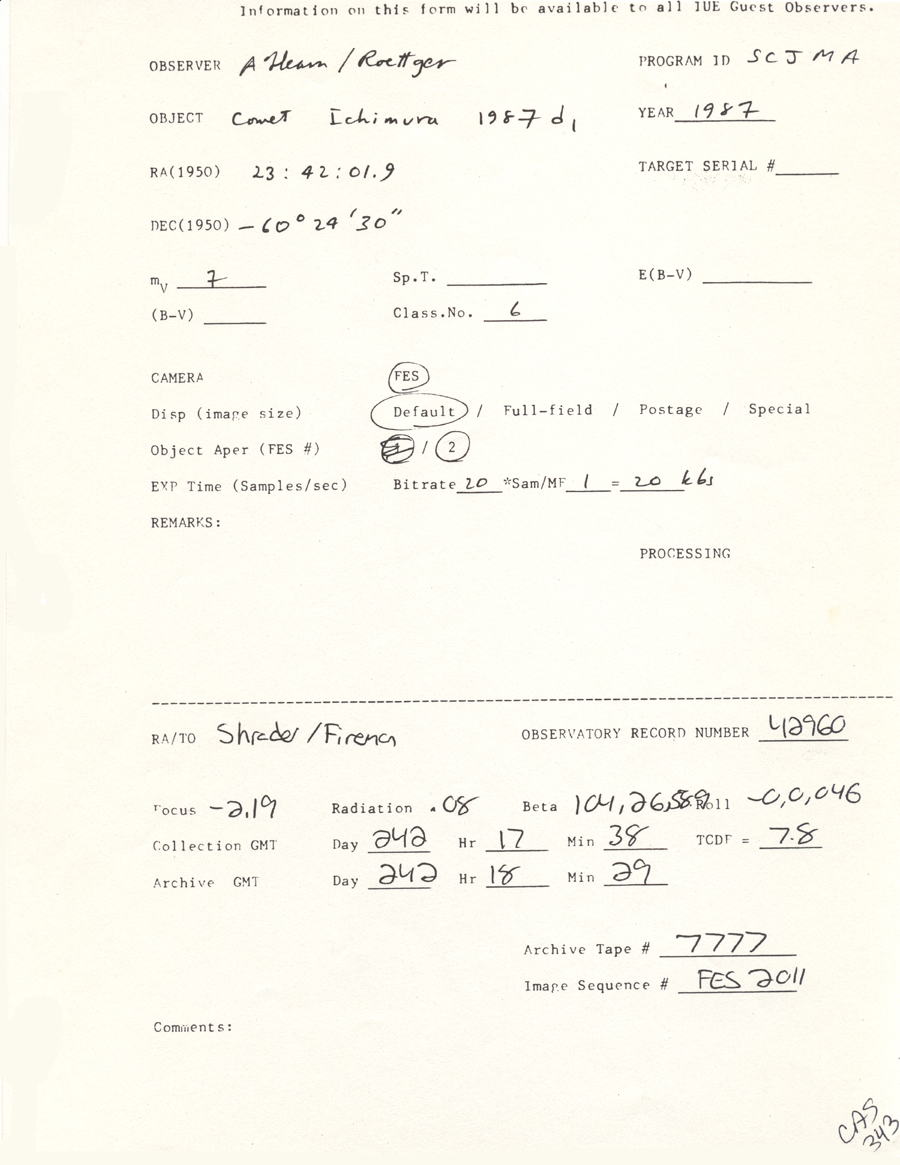 Information on this form will be available to all IUE Guest Observers.
OBSERVER A'Hearn / Roettger PROGRAM ID SCJMA
OBJECT Comet Ichimura 1987 d1 YEAR 1987
RA(1950) 23 : 42 : 01.9 TARGET SERIAL #
DEC(1950) -60° 24' 30"
mV 7 Sp.T. E(B-V)
(B-V) Class.No. 6
CAMERA FES
Disp (image size) Default / Full-field / Postage / Special
Object Aper (FES #) / 2
EXP Time (Samples/sec) Bitrate 20 *Sam/MF 1 = 20 kbs
REMARKS:
PROCESSING
RA/TO Shrader / OBSERVATORY RECORD NUMBER 42960
Focus -2.19 Radiation .08 Beta 104, 26, Roll -0,0,046
Collection GMT Day 242 Hr 17 Min 38 TCDF = 7.8
Archive GMT Day 242 Hr 18 Min 29
Archive Tape # 7777
Image Sequence # FES 2011
Comments:
CAS
343